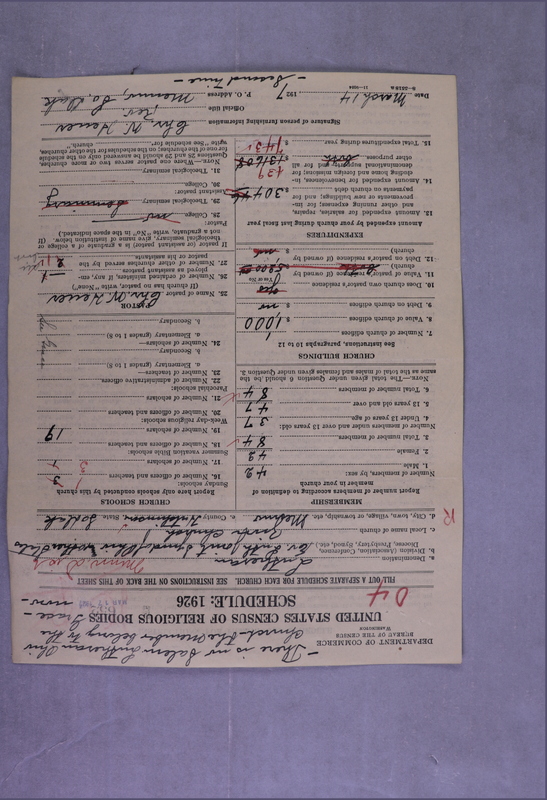 — There is no Salem Lutheran Ohio
church the member belong to the
Grace —
now —
DEPARTMENT OF COMMERCE
BUREAU OF THE CENSUS
WASHINGTON
UNITED STATES CENSUS OF RELIGIOUS BODIES
SCHEDULE: 1926
FILL OUT A SEPARATE SCHEDULE FOR EACH CHURCH. SEE INSTRUCTIONS ON THE BACK OF THIS SHEET
a. Denomination Lutheran
b. Division (Association, Conference,
Diocese, Presbytery, Synod, etc.) Ev Luth Joint Synod of Ohio & other States
c. Local name of church
d. City, town, village, or township, etc. County Hutchinson State So Dak
R
MEMBERSHIP
Report number of members according to definition of
member in your church
Number of members, by sex:
1. Male 42
2. Female 42
3. Total number of members 84
Number of members under and over 13 years old:
4. Under 13 years of age 37
5. 13 years old and over 47
6. Total number of members 84
NOTE.—The total given under Question 6 should be the
same as the total of males and females given under Question 3.
CHURCH BUILDINGS
See instructions, paragraphs 10 to 12
7. Number of church edifices 1
8. Value of church edifices $ 1,000
9. Debt on church edifices $ no
10. Does church own pastor's residence yes
Yes or No
11. Value of pastor's residence (if owned by
church) $
12. Debt on pastor's residence (if owned by
church) $ no
EXPENDITURES
Amount expended by your church during last fiscal year
13. Amount expended for salaries, repairs,
and other running expenses; for im-
provements or new buildings; and for
payments on church debt $ 304
14. Amount expended for benevolences, in-
cluding home and foreign missions; for
denominational support; and for all
other purposes $
15. Total expenditures during year $
CHURCH SCHOOLS
Report here only schools conducted by this church
Sunday schools:
16. Number of officers and teachers 3
17. Number of scholars
Summer vacation Bible schools:
18. Number of officers and teachers
19. Number of scholars 19
Week-day religious schools:
20. Number of officers and teachers
21. Number of scholars
Parochial schools:
22. Number of administrative officers
23. Number of teachers—
a. Elementary (grades 1 to 8)
b. Secondary
24. Number of scholars—
a. Elementary (grades 1 to 8)
b. Secondary
PASTOR
25. Name of pastor Chr. W. Heuer
(If church has no pastor, write "None")
26. Number of ordained clergymen, if any, em-
ployed as assistant pastors
27. Number of other churches served by the
pastor or his assistants
If pastor (or assistant) is a graduate of a college or
theological seminary, give name of institution below. (If
not a graduate, write "No" in the space indicated.)
Pastor:
28. College no
29. Theological seminary
Assistant pastor:
30. College
31. Theological seminary
NOTE.—Where one pastor serves two or more churches,
Questions 25 and 26 should be answered only on the schedule
for one of the churches; on the schedules for the other churches,
write "See schedule for church."
Signature of person furnishing information Chr. W. Heuer
Official title Rev.
Date March 14, 1927 P. O. Address Menno, So. Dak
— Second Time —